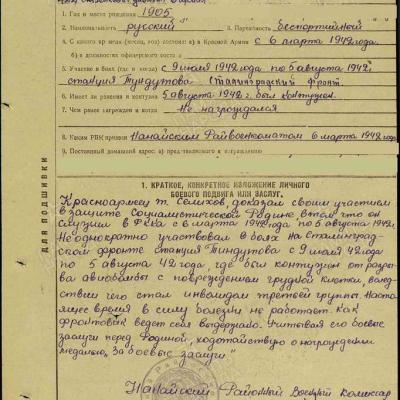 1. Год и место рождения 1905
2. Национальность русский 3. Партийность беспартийный
4. С какого времени (месяц, год) состоит в Красной Армии с 6 марта 1942 года.
5. Участие в боях (где и когда) с 9 июля 1942 года по 5 августа 1942г
станция Тундутова (Сталинградский фронт.
6. Имеет ли ранения и контузии 5 августа 1942 г. был контужен.
7. Чем ранее награжден и когда Не награждался
8. Каким РВК призван Нанайским Райвоенкоматом 6 марта 1942 года.
9. Постоянный домашний адрес:
ДЛЯ ПОДШИВКИ
1. КРАТКОЕ, КОНКРЕТНОЕ ИЗЛОЖЕНИЕ ЛИЧНОГО
БОЕВОГО ПОДВИГА ИЛИ ЗАСЛУГ.
Красноармеец т. Селихов, доказал своим участием
в защите Социалистической Родине, в том что он
служил в РККА с 6 марта 1942 года по 5 августа 1942г.
Не однократно участвовал в боях на Сталинград-
ском фронте станция Тундутова с 9 июля 42 года
по 5 августа 42 года, где был контужен от разры-
ва авиабомбы с повреждением грудной клетки, вслед-
ствии чего стал инвалидом третьей группы. Насто-
ящее время в силу болезни не работает. Как
фронтовик ведет себя выдержано. Учитывая его боевые
заслуги перед Родиной, ходотайствую о награждении
медалью, "За боевые заслуги"
Нанайский Районный Военный Комиссар